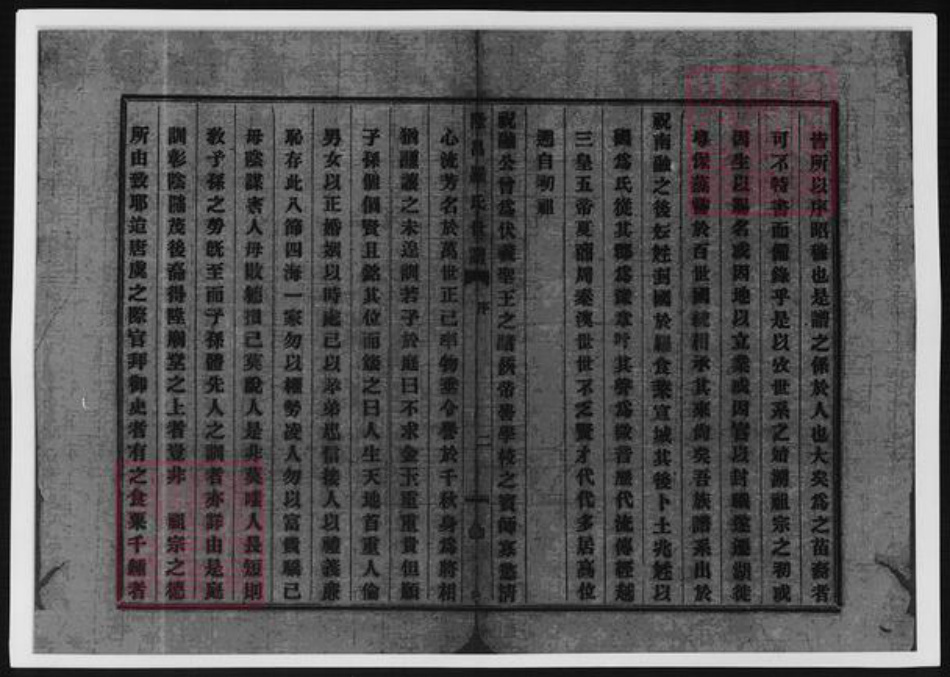 皆所以序昭穆也是譜之係於人也大矣為之苗裔者
可不特書而備錄乎是以攷世系之始溯祖宗之初或
因生以賜名或因地以立業或因官以封職遷徙
於百世國統相承其來尚矣吾族譜系出於
祝南融之後妘姓封國於羅食菜宣城其後卜土兆姓以
國為氏從其鄉為豫章叶其聲為徵音歷代流傳經越
三皇五帝夏商周秦漢世世不乏賢才代代多居高位
遇自初祖
祝融公曾為伏羲聖王之諸侯帝嚳學校之賓師寡慾清
羅氏世譜 序 二
心流芳名於萬世正己率物垂令譽於千秋身為將相
猶謙讓之未遑訓若子於庭曰不求金玉重重貴但願
子孫個個賢且銘其位而箴之曰人生天地首重人倫
男女以正婚姻以時處己以孝弟忠信接人以禮義廉
恥存此八節四海一家勿以權勢凌人勿以富貴驕己
毋陰謀害人毋敗德損己莫說人是非莫嗤人長短則
教子孫之勞既至而子孫體先人之訓者亦詳由是庭
訓彰陰隲茂後裔得陞廟堂之上者豈非 祖宗之德
所由致耶迨唐虞之際官拜御史者有之食粟千鍾者